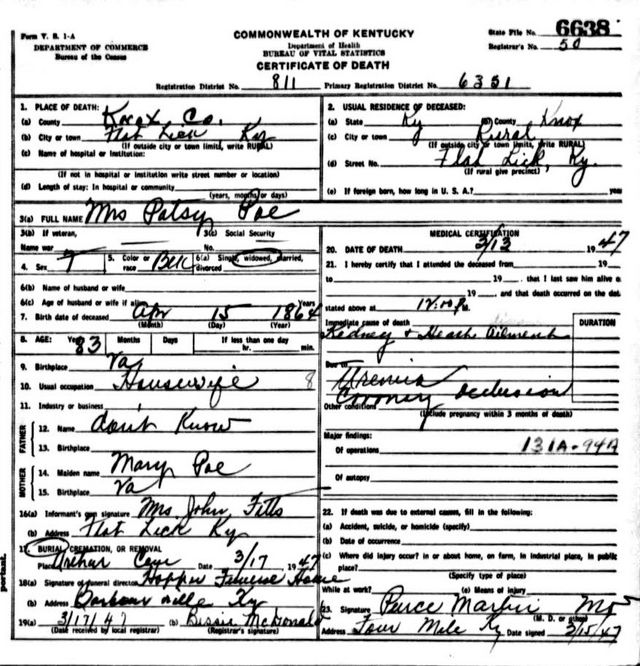 Form V. S. 1-A
DEPARTMENT OF COMMERCE
Bureau of the Census
COMMONWEALTH OF KENTUCKY
Department of Health
BUREAU OF VITAL STATISTICS
CERTIFICATE OF DEATH
State File No. 6638
Registrar's No. 50
Registration District No. 811 Primary Registration District No. 6351
1. PLACE OF DEATH:
(a) County Knox Co.
(b) City or town Flat Lick Ky
(If outside city or town limits, write RURAL)
(c) Name of hospital or institution:
(If not in hospital or institution write street number or location)
(d) Length of stay: In hospital or community
(years, months or days)
2. USUAL RESIDENCE OF DECEASED:
(a) State Ky (b) County Knox
(c) City or town Rural
(If outside city or town limits, write RURAL)
(d) Street No. Flat Lick, Ky.
(If rural give precinct)
(e) If foreign born, how long in U. S. A.? year
3(a) FULL NAME Mrs Patsy Poe
3(b) If veteran,
Name war
3(c) Social Security
No.
4. Sex F
5. Color or race
6(a) Single, widowed, married,
divorced
6(b) Name of husband or wife
6(c) Age of husband or wife if alive Years
7. Birth date of deceased Apr 15 1864
(Month) (Day) (Year)
8. AGE: Years 83 Months Days If less than one day
hr. min.
9. Birthplace Va
10. Usual occupation Housewife 8
11. Industry or business
FATHER
12. Name don't Know
13. Birthplace
MOTHER
14. Maiden name Mary Poe
15. Birthplace Va
16(a) Informant's own signature Mrs John Fitts
(b) Address Flat Lick Ky
17. BURIAL, CREMATION, OR REMOVAL
Place Arthur Cem Date 3/17 1947
18(a) Signature of funeral director Hopper Funeral Home
(b) Address Barbourville Ky
19(a) 3/17/47 (b) Bessie McDonald
(Date received by local registrar) (Registrar's signature)
MEDICAL CERTIFICATION
20. DATE OF DEATH 3/13 1947
21. I hereby certify that I attended the deceased from 19
to 19 , that I last saw him alive o
19 , and that death occurred on the dat
stated above at 12:00 P.
Immediate cause of death
Kedney & Heart Ailment
DURATION
Due to Uremia
Coronary Occlusion
Other conditions
(Include pregnancy within 3 months of death)
Major findings:
Of operations 131A-94A
Of autopsy
22. If death was due to external causes, fill in the following:
(a) Accident, suicide, or homicide (specify)
(b) Date of occurrence
(c) Where did injury occur? in or about home, on farm, in industrial place, in public
place?
(Specify type of place)
While at work? (e) Means of injury
23. Signature Pierce Martin MD
(M. D. or other)
Address Four Mile Ky Date signed 3/15/47
portant.